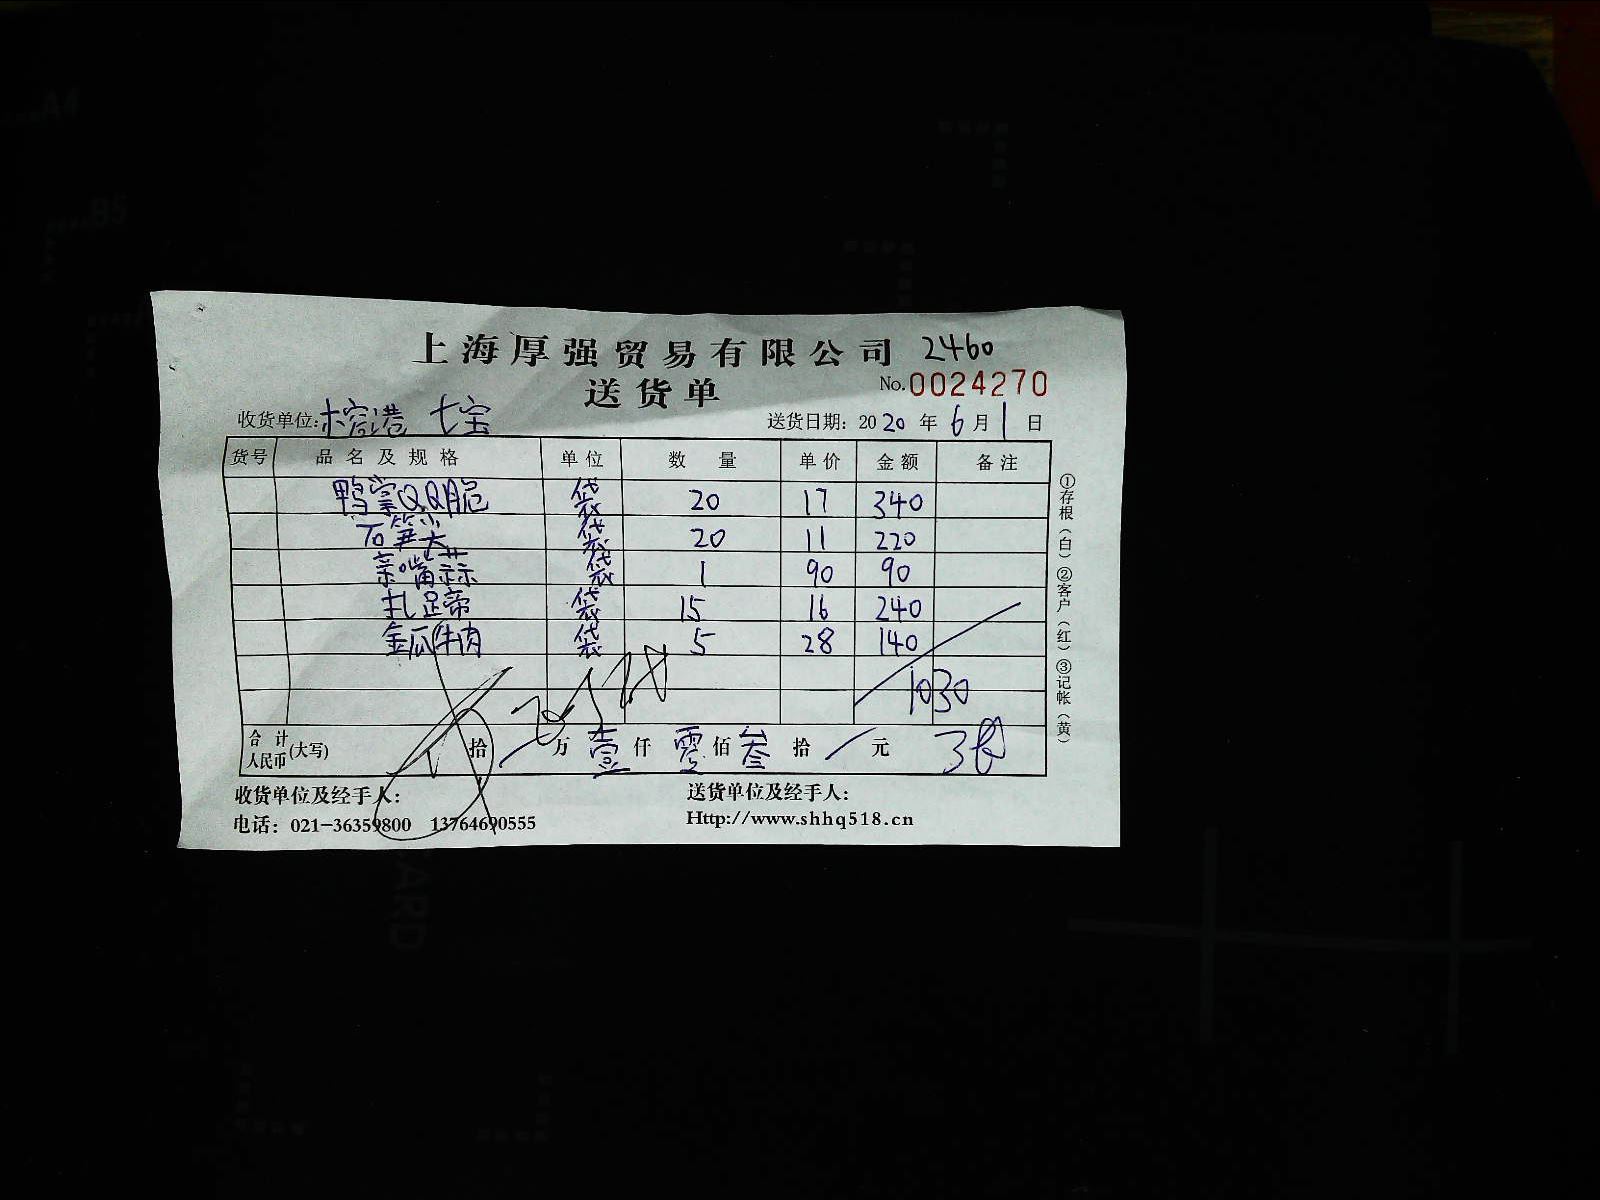 上海厚强贸易有限公司 2460
送货单 No.0024270
收货单位: 榕港 七宝 送货日期: 2020 年 6 月 1 日
货号 品名及规格 单位 数量 单价 金额 备注
鸭掌QQ脆 袋 20 17 340
石笋尖 袋 20 11 220
亲嘴蒜 袋 1 90 90
扎足蒂 袋 15 16 240
金瓜牛肉 袋 5 28 140
1030
合计人民币(大写) 拾 万 壹 仟 零 佰 叁 拾 元
收货单位及经手人: 送货单位及经手人:
电话: 021-36359800 13764690555 Http://www.shhq518.cn
①存根(白)②客户(红)③记帐(黄)
A4
B5
CARD